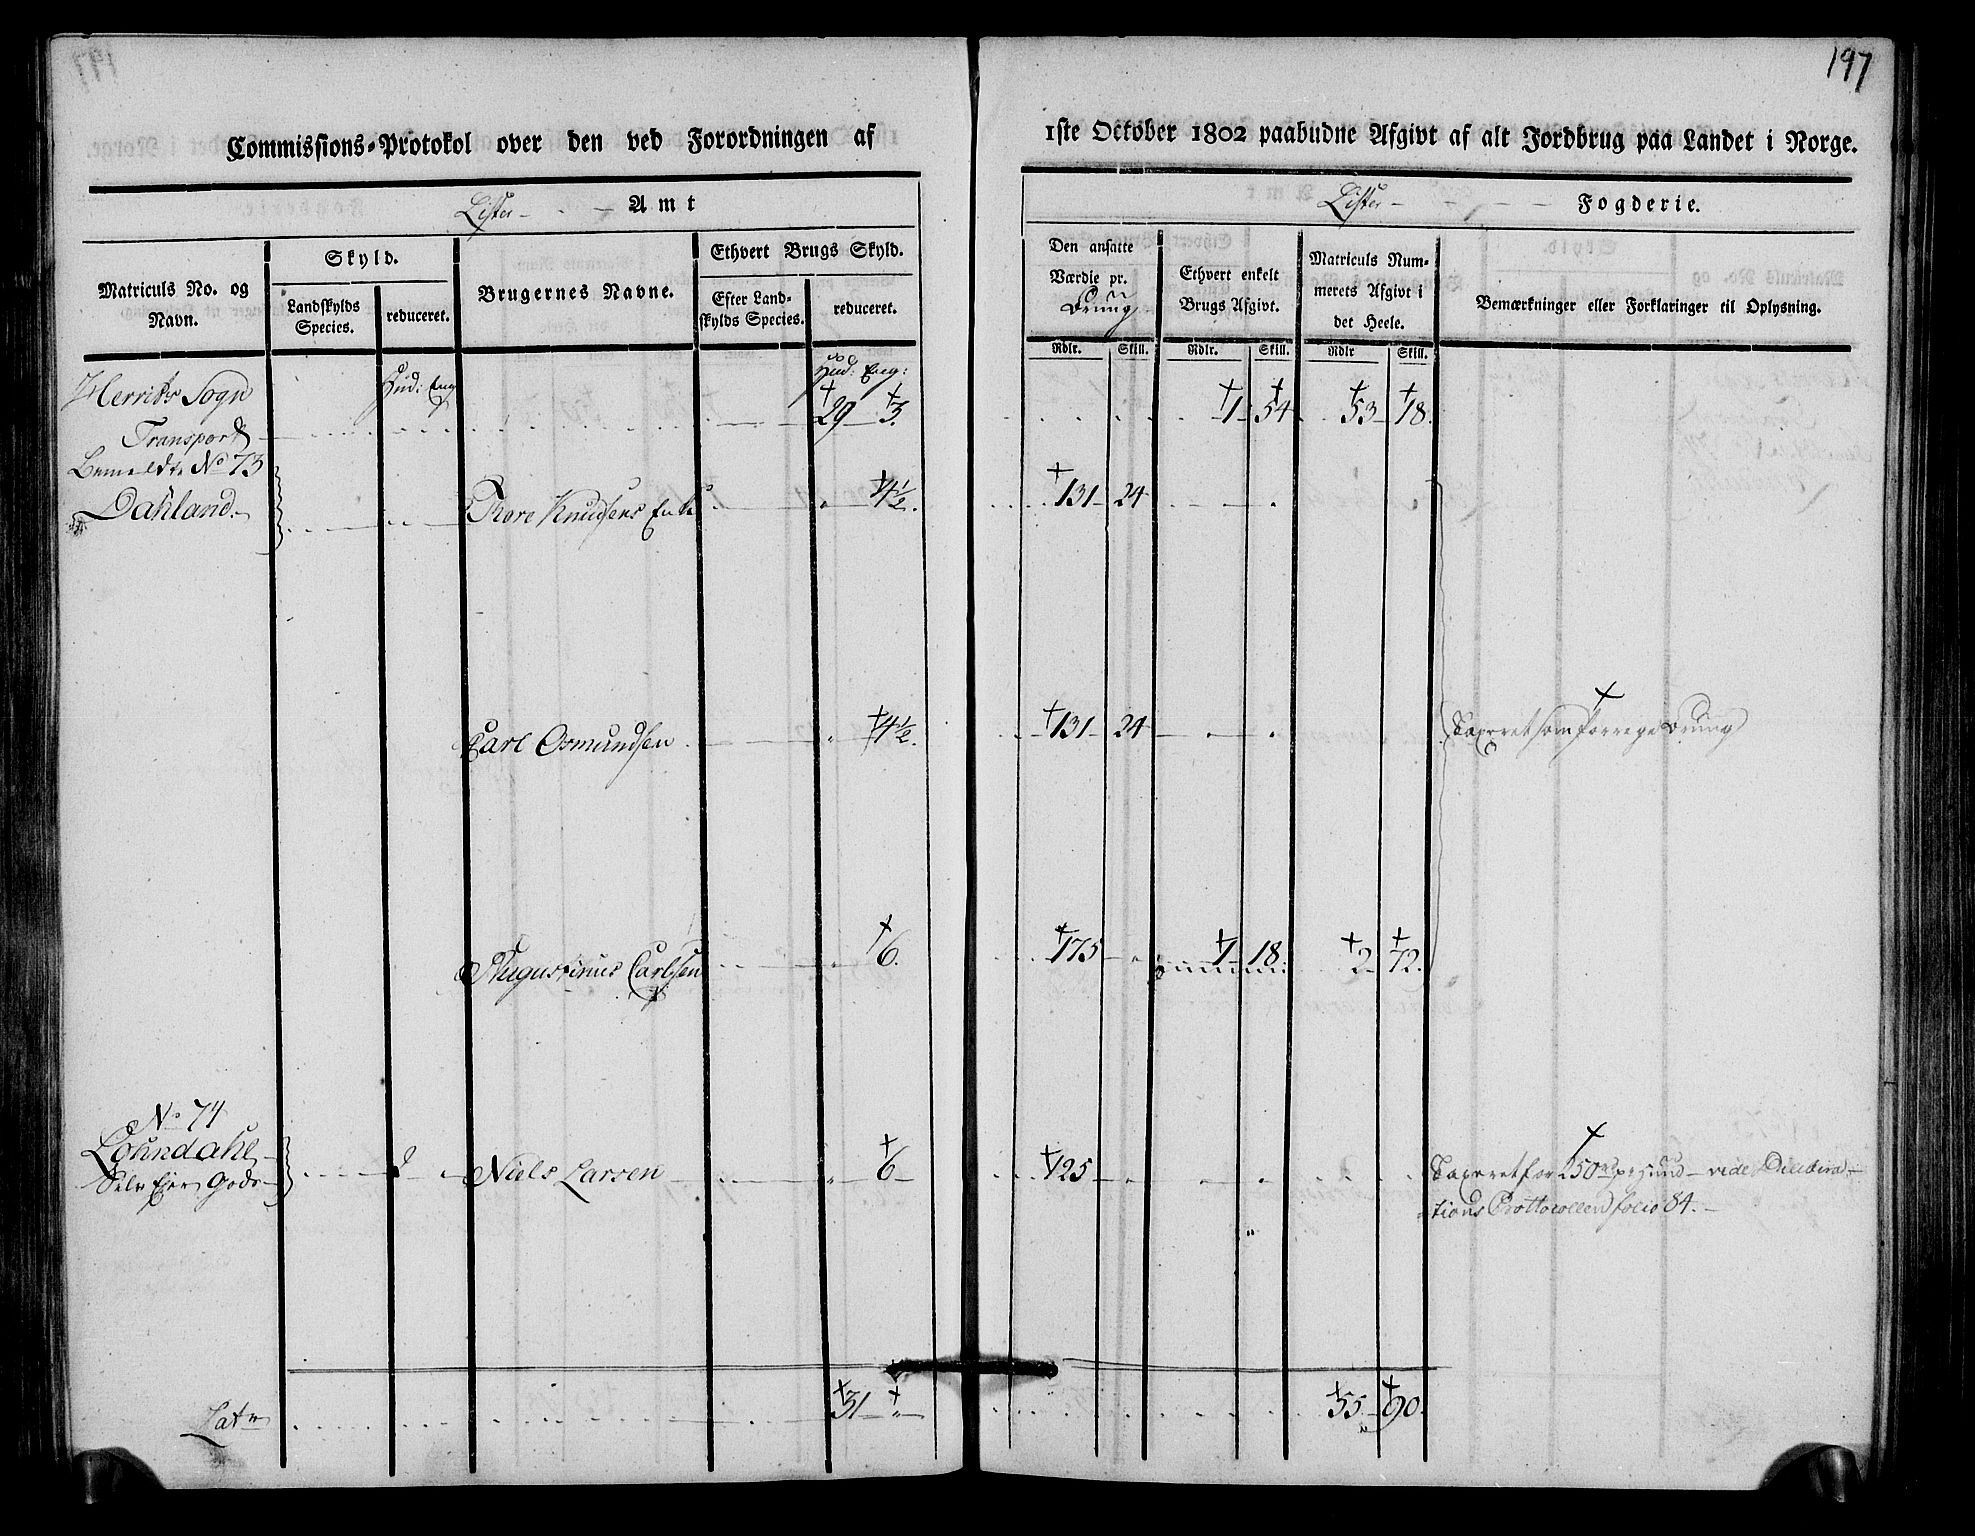 197
Commissions-Protokol over den ved Forordningen af
1ste October 1802 paabudne Afgivt af alt Jordbrug paa Landet i Norge.
Lister Amt
Lister Fogderie.
Matriculs No. og Navn.
Skyld.
Landskylds Species.
reduceret.
Brugernes Navne.
Ethvert Brugs Skyld.
Efter Land-
skylds Species.
reduceret.
Den ansatte
Værdie pr.
Ethvert enkelt
Brugs Afgivt.
Matriculs Num-
merets Afgivt i
det Heele.
Bemærkninger eller Forklaringer til Oplysning.
Rdlr. Skill. Rdlr. Skill. Rdlr Skill.
Hud: Eng
Hud: Eng:
Sogn
Transport 29 3. 1 54 53 18.
No 73
Dahland Tore Knudsens Enke 4½. 131 24
Carl Osmundsen 4½. 131 24 Taxeret som forrege
Augustinus Carlsen 6. 175 1 18 2 72.
No 74
Lohndahl
Selv Eier Gods 1 Niels Larsen 6 125 Taxeret for 250 vide Delibera-
tions Prottocollen folio 84.
Lat 31 55 90.